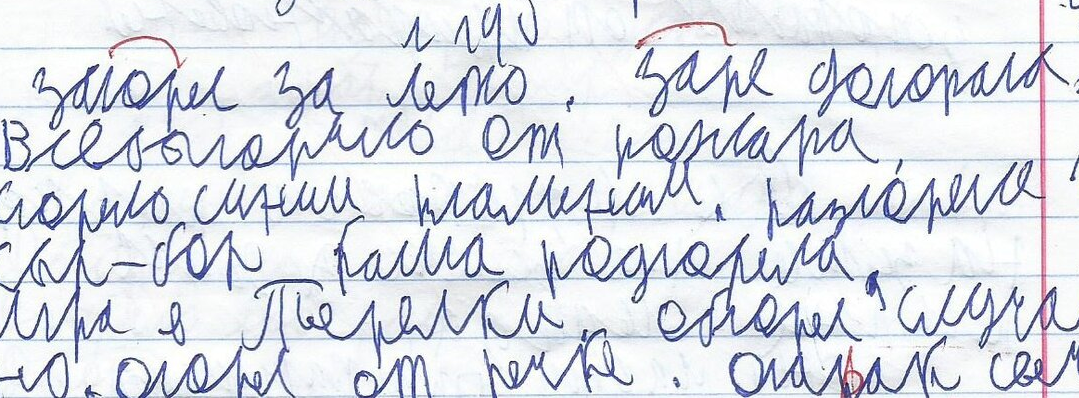 загорел за лето. заре догорала
Всевыгорило от пожара
горело синим пламеном. разгорелся
сыр-бор каша подгорела.
Игра в Горелки. обгорел случа
но. огорел от речке. огарак свеч